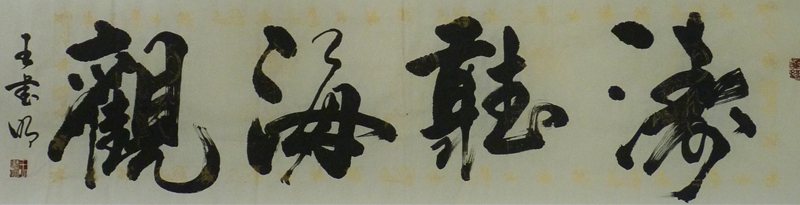 觀海聽濤
王書明